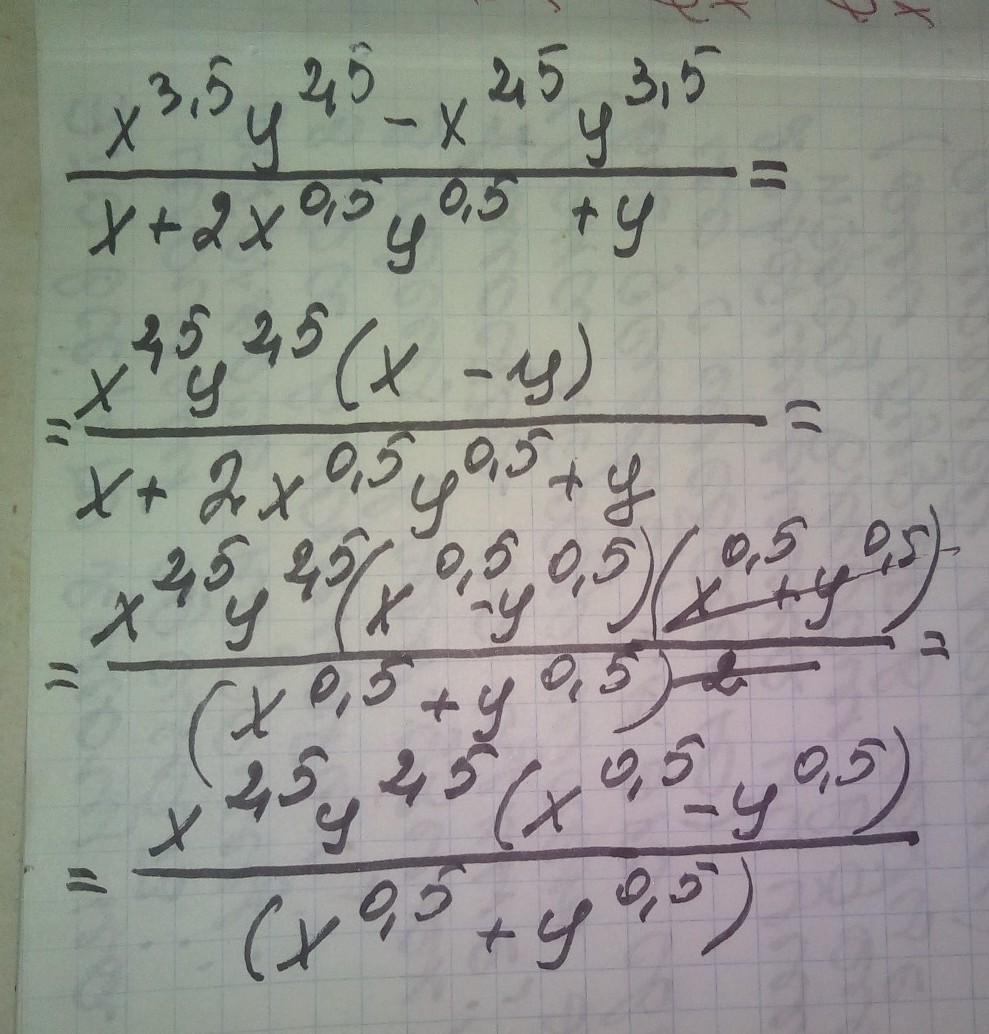 x^3,5 y^2,5 - x^2,5 y^3,5
x + 2x^0,5 y^0,5 + y =
= x^2,5 y^2,5 (x - y)
x + 2x^0,5 y^0,5 + y =
= x^2,5 y^2,5 (x^0,5 - y^0,5)(x^0,5 + y^0,5)
(x^0,5 + y^0,5)^2 =
= x^2,5 y^2,5 (x^0,5 - y^0,5)
(x^0,5 + y^0,5)